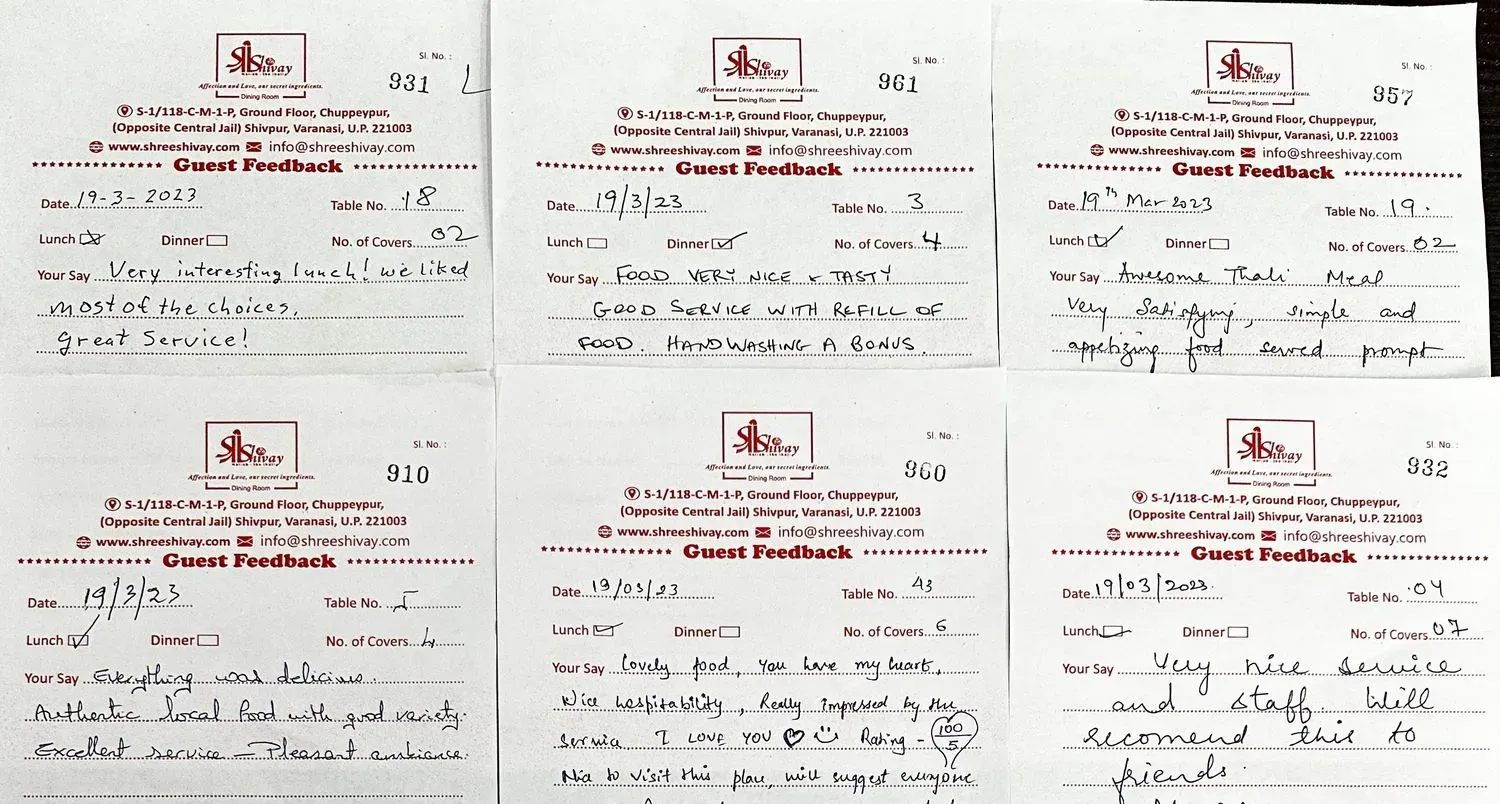 Shivay
Sl. No. :
931
Affection and Love, our secret ingredients.
Dining Room
S-1/118-C-M-1-P, Ground Floor, Chuppeypur,
(Opposite Central Jail) Shivpur, Varanasi, U.P. 221003
www.shreeshivay.com info@shreeshivay.com
Guest Feedback
Date 19-3-2023 Table No. 18
Lunch Dinner No. of Covers 02
Your Say Very interesting lunch! we liked
most of the choices.
great Service!
Shivay
Sl. No. :
961
Affection and Love, our secret ingredients.
Dining Room
S-1/118-C-M-1-P, Ground Floor, Chuppeypur,
(Opposite Central Jail) Shivpur, Varanasi, U.P. 221003
www.shreeshivay.com info@shreeshivay.com
Guest Feedback
Date 19/3/23 Table No. 3
Lunch Dinner No. of Covers 4
Your Say FOOD VERY NICE & TASTY
GOOD SERVICE WITH REFILL OF
FOOD. HANDWASHING A BONUS.
Shivay
Sl. No. :
957
Affection and Love, our secret ingredients.
Dining Room
S-1/118-C-M-1-P, Ground Floor, Chuppeypur,
(Opposite Central Jail) Shivpur, Varanasi, U.P. 221003
www.shreeshivay.com info@shreeshivay.com
Guest Feedback
Date 19th Mar 2023 Table No. 19.
Lunch Dinner No. of Covers 02
Your Say Awesome Thali Meal
Very Satisfying, simple and
appetizing food served prompt
Shivay
Sl. No. :
910
Affection and Love, our secret ingredients.
Dining Room
S-1/118-C-M-1-P, Ground Floor, Chuppeypur,
(Opposite Central Jail) Shivpur, Varanasi, U.P. 221003
www.shreeshivay.com info@shreeshivay.com
Guest Feedback
Date 19/3/23 Table No. 5
Lunch Dinner No. of Covers 4
Your Say Everything was delicious.
Authentic local food with good variety.
Excellent service - Pleasant ambiance.
Shivay
Sl. No. :
960
Affection and Love, our secret ingredients.
Dining Room
S-1/118-C-M-1-P, Ground Floor, Chuppeypur,
(Opposite Central Jail) Shivpur, Varanasi, U.P. 221003
www.shreeshivay.com info@shreeshivay.com
Guest Feedback
Date 19/03/23 Table No. 43
Lunch Dinner No. of Covers 6
Your Say Lovely food, you have my heart,
Nice hospitability, Really impressed by the
service I LOVE YOU Rating - 100/5
Nice to visit this place, will suggest everyone
Shivay
Sl. No. :
932
Affection and Love, our secret ingredients.
Dining Room
S-1/118-C-M-1-P, Ground Floor, Chuppeypur,
(Opposite Central Jail) Shivpur, Varanasi, U.P. 221003
www.shreeshivay.com info@shreeshivay.com
Guest Feedback
Date 19/03/2023. Table No. 04
Lunch Dinner No. of Covers 07
Your Say Very nice service
and staff. Will
recomend this to
friends.